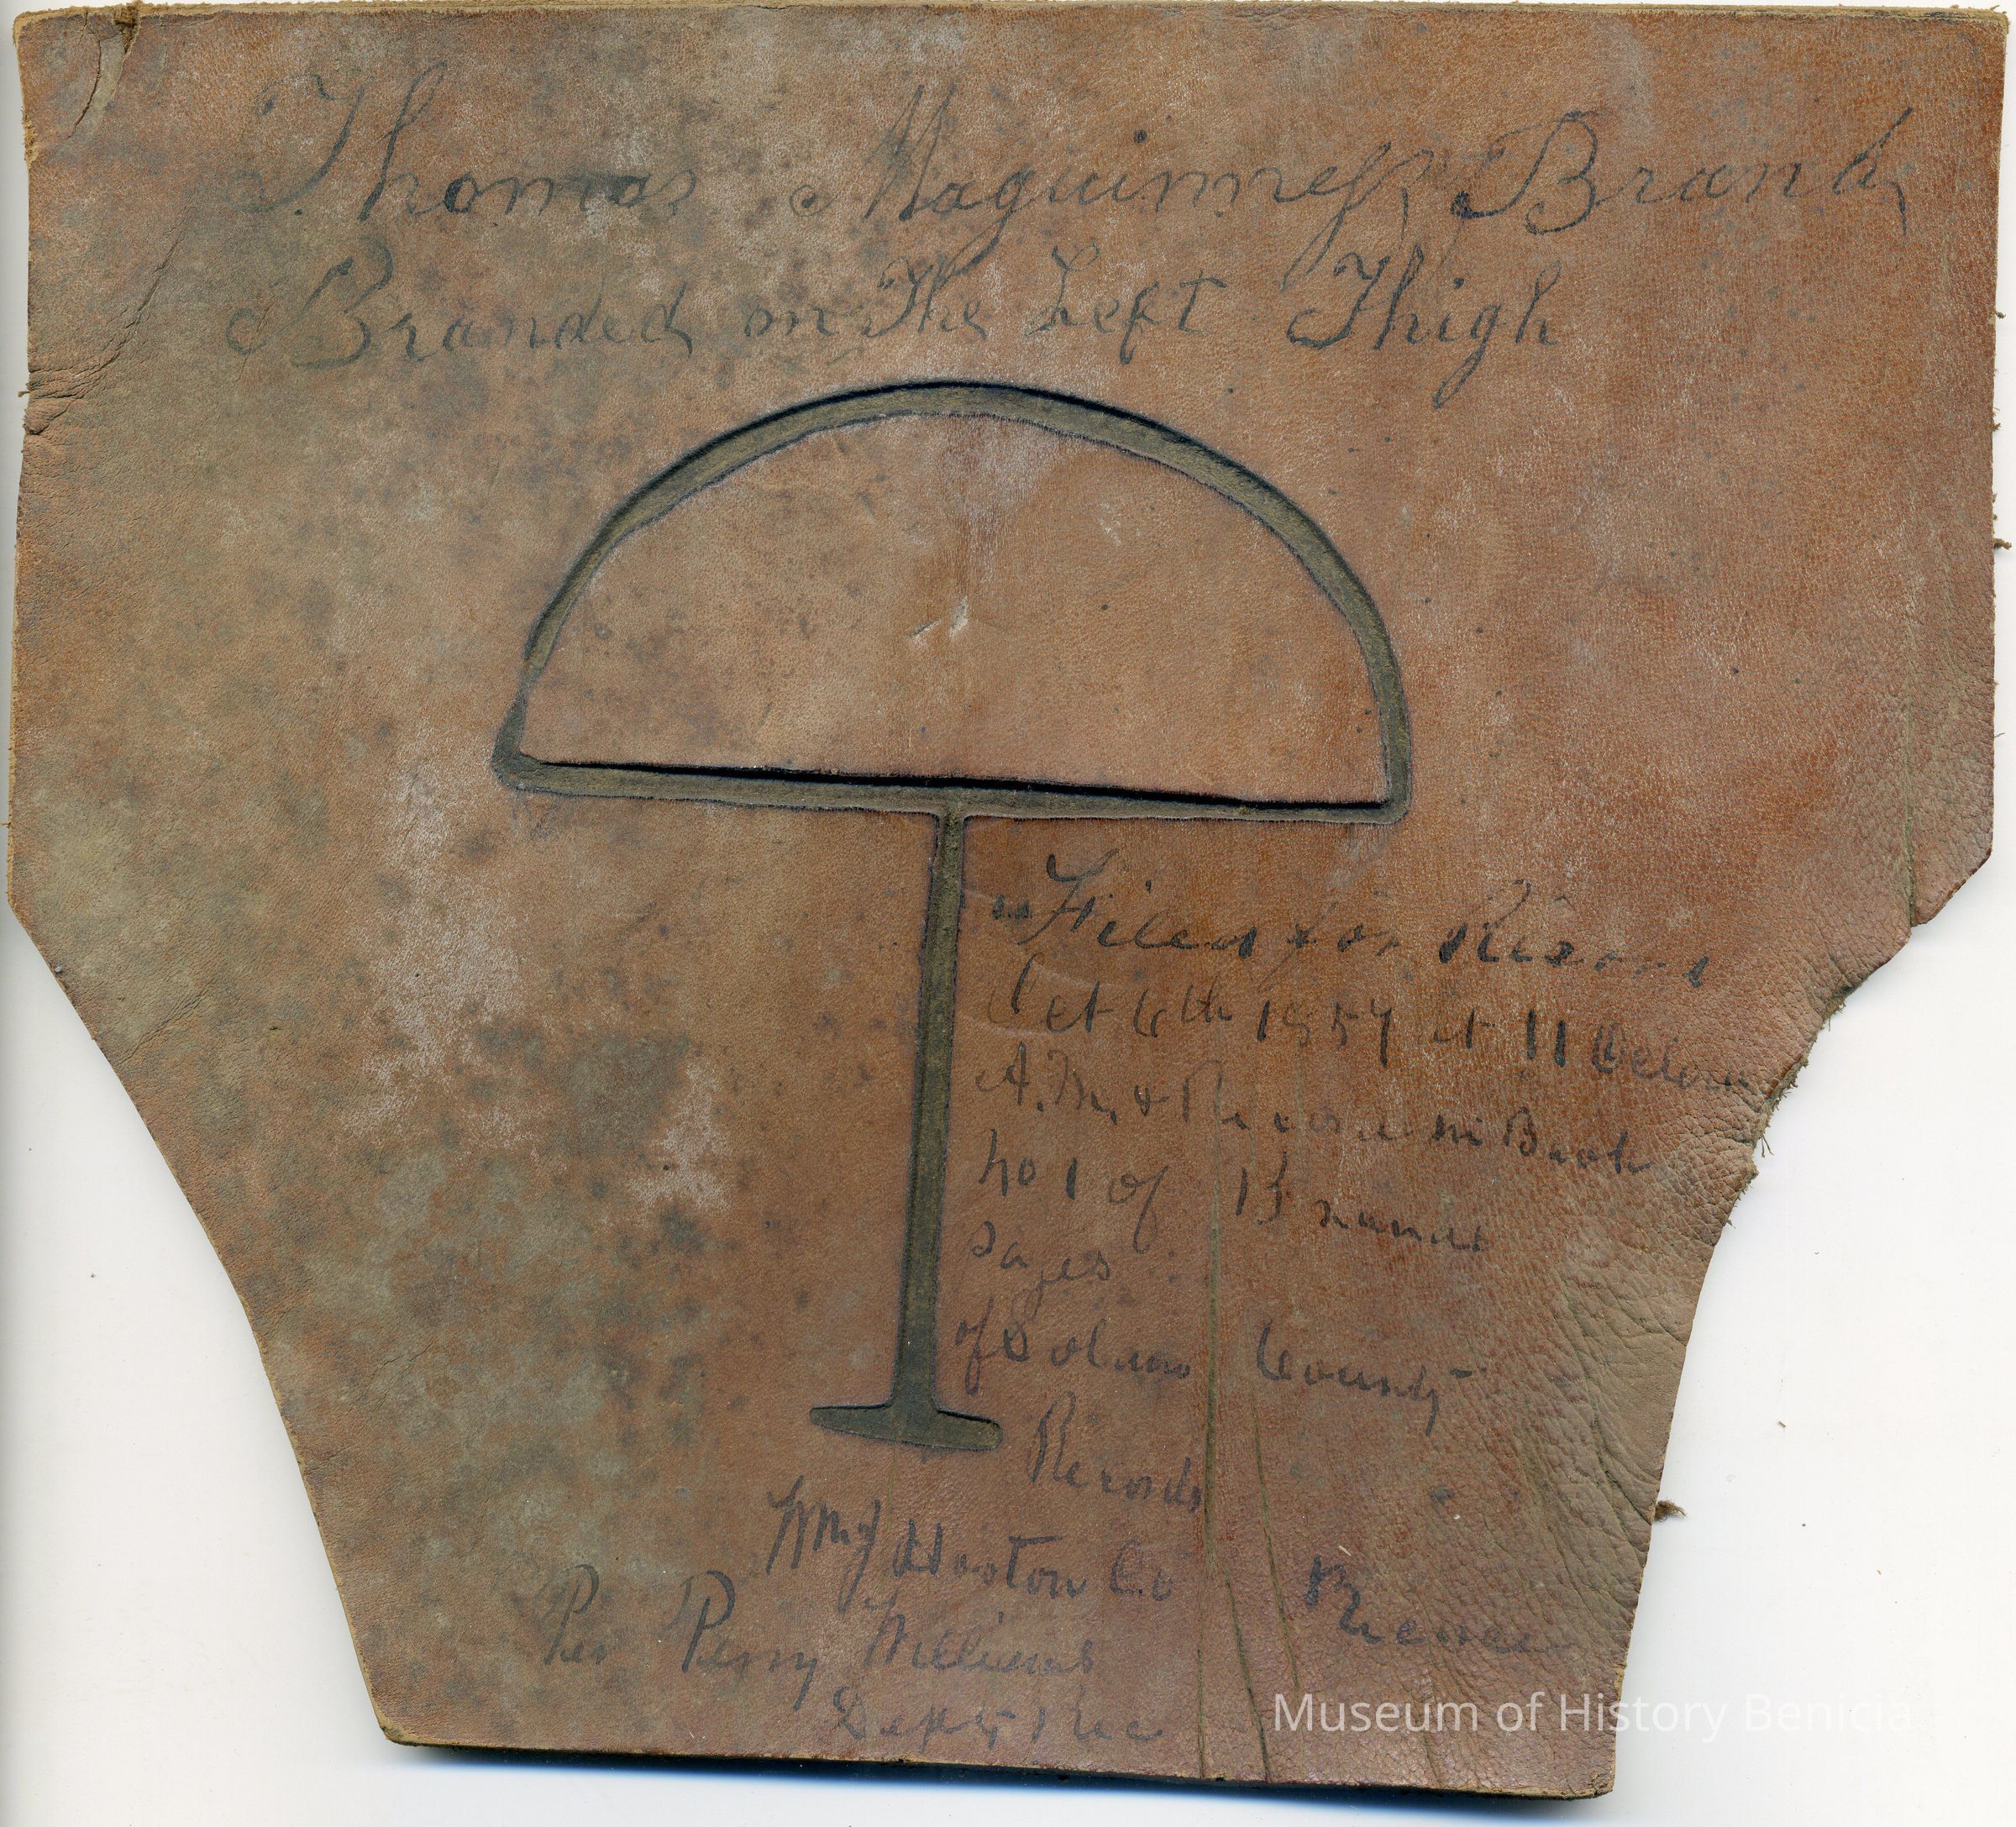 Thomas Maguinness Brand
Branded on The Left Thigh
Filed for Record
Oct 6th 1857 at 11 Oclock
A.M. & Record in Book
No 1 of Brands
Pages
of Solano County
Records
Wm J Hooton Co Recorder
Per Perry Williams
Depty Rec
Museum of History Benicia